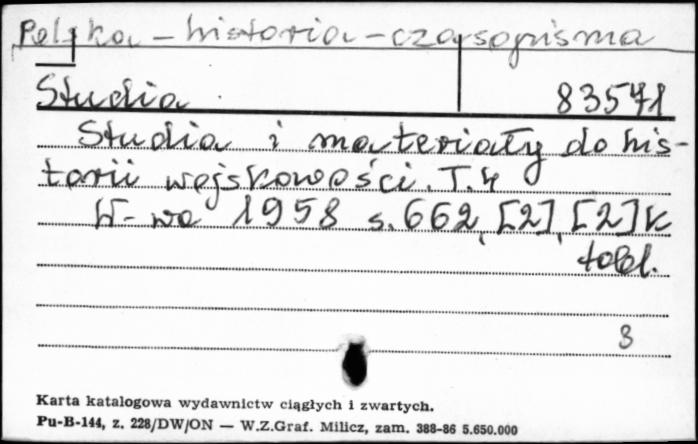 Polska - historia - czasopisma
Studia 83571
Studia i materiały do his-
torii wojskowości. T. 4
W-wa 1958 s. 662, [2], [2] k
tabl.
3
Karta katalogowa wydawnictw ciągłych i zwartych.
Pu-B-144, z. 228/DW/ON — W.Z.Graf. Milicz, zam. 388-86 5.650.000